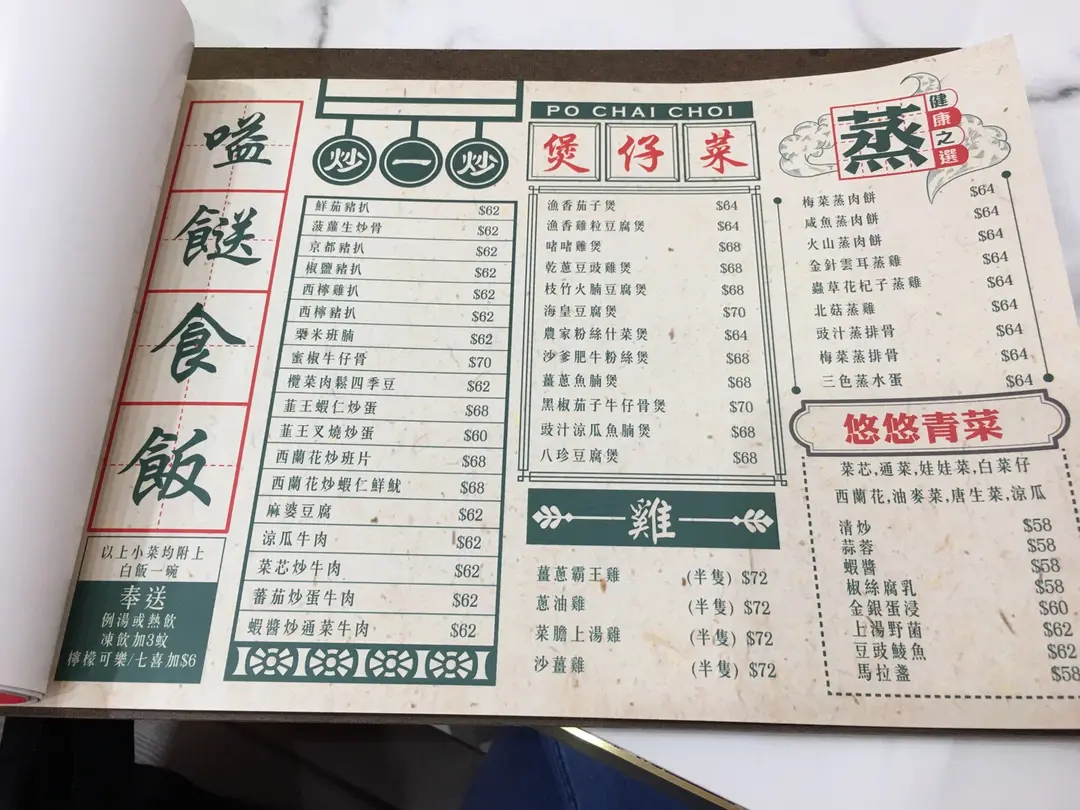 嗌
餸
食
飯
以上小菜均附上
白飯一碗
奉送
例湯或熱飲
凍飲加3蚊
檸檬可樂/七喜加$6
炒一炒
鮮茄豬扒 $62
菠蘿生炒骨 $62
京都豬扒 $62
椒鹽豬扒 $62
西檸雞扒 $62
西檸豬扒 $62
粟米班腩 $62
蜜椒牛仔骨 $70
欖菜肉鬆四季豆 $62
韮王蝦仁炒蛋 $68
韮王叉燒炒蛋 $60
西蘭花炒班片 $68
西蘭花炒蝦仁鮮魷 $68
麻婆豆腐 $62
涼瓜牛肉 $62
菜芯炒牛肉 $62
蕃茄炒蛋牛肉 $62
蝦醬炒通菜牛肉 $62
PO CHAI CHOI
煲仔菜
漁香茄子煲 $64
漁香雞粒豆腐煲 $64
啫啫雞煲 $68
乾蔥豆豉雞煲 $68
枝竹火腩豆腐煲 $68
海皇豆腐煲 $70
農家粉絲什菜煲 $64
沙爹肥牛粉絲煲 $68
薑蔥魚腩煲 $68
黑椒茄子牛仔骨煲 $70
豉汁涼瓜魚腩煲 $68
八珍豆腐煲 $68
雞
薑蔥霸王雞 (半隻) $72
蔥油雞 (半隻) $72
菜膽上湯雞 (半隻) $72
沙薑雞 (半隻) $72
蒸
健康之選
梅菜蒸肉餅 $64
咸魚蒸肉餅 $64
火山蒸肉餅 $64
金針雲耳蒸雞 $64
蟲草花杞子蒸雞 $64
北菇蒸雞 $64
豉汁蒸排骨 $64
梅菜蒸排骨 $64
三色蒸水蛋 $64
悠悠青菜
菜芯,通菜,娃娃菜,白菜仔
西蘭花,油麥菜,唐生菜,涼瓜
清炒 $58
蒜蓉 $58
蝦醬 $58
椒絲腐乳 $58
金銀蛋浸 $60
上湯野菌 $62
豆豉鯪魚 $62
馬拉盞 $58